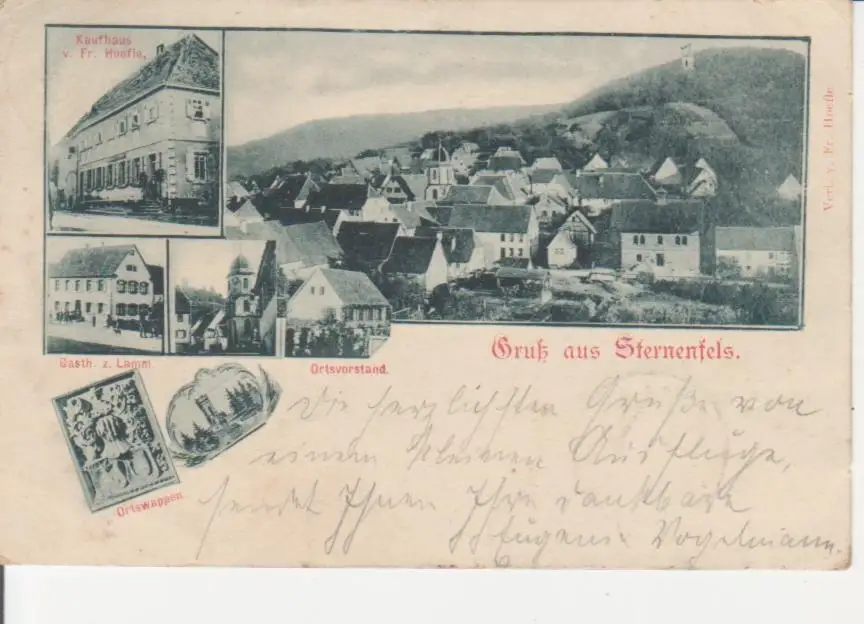 Kaufhaus
v. Fr. Hoefle,
Verl. v. Fr. Hoefle
Gasth. z. Lamm.
Ortsvorstand.
Gruß aus Sternenfels.
Ortswappen
Die herzlichsten Grüße von
einem kleinen Ausfluge,
sendet Ihnen Ihre dankbare
Eugenie Vogelmann.